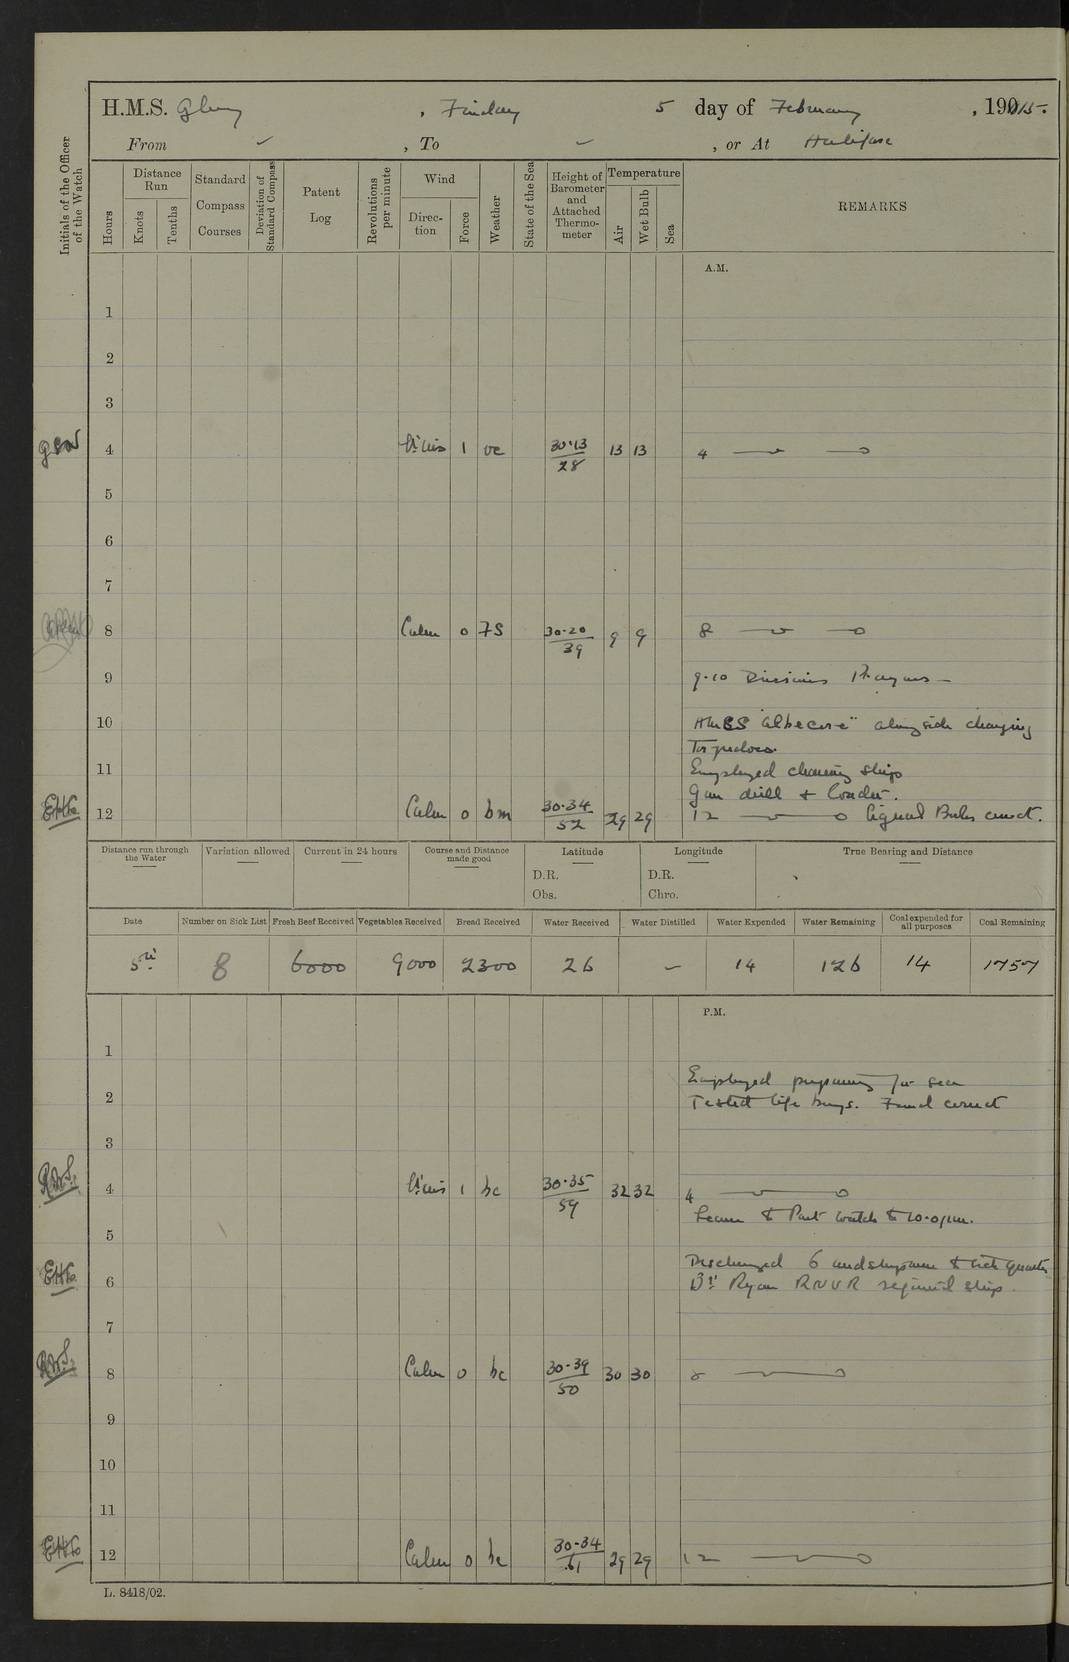 H.M.S. Glory, Friday 5 day of February, 1915.
From ✓, To ✓, or At Halifax
Initials of the Officer of the Watch
Hours
Distance Run
Knots
Tenths
Standard Compass Courses
Deviation of Standard Compass
Patent Log
Revolutions per minute
Wind
Direction
Force
Weather
State of the Sea
Height of Barometer and Attached Thermometer
Temperature
Air
Wet Bulb
Sea
REMARKS
A.M.
1
2
3
4 1 oc 30.13 / 28 13 13 4
5
6
7
8 Calm 0 FS 30.20 / 39 9 9 8
9 9.10 Divisions Prayers
10 alongside changing
Torpedoes.
11 Employed cleaning ship
Gun drill & loader.
12 Calm 0 bm 30.34 / 52 29 29 12
Distance run through the Water
Variation allowed
Current in 24 hours
Course and Distance made good
Latitude
D.R.
Obs.
Longitude
D.R.
Chro.
True Bearing and Distance
Date Number on Sick List Fresh Beef Received Vegetables Received Bread Received Water Received Water Distilled Water Expended Water Remaining Coal expended for all purposes Coal Remaining
5th 8 6000 9000 2300 26 – 14 126 14 1757
P.M.
1
Employed preparing for sea
2 Tested life buoys. Found correct
3
R.M.S. 4 1 bc 30.35 / 59 32 32 4
Leave to Part Watch to 10.0 p.m.
5
Discharged 6 midshipmen to sick quarters
6 Ryan RNVR rejoined ship.
7
R.M.S. 8 Calm 0 bc 30.39 / 50 30 30 8
9
10
11
12 Calm 0 bc 30.34 / 61 29 29 12
L. 8418/02.